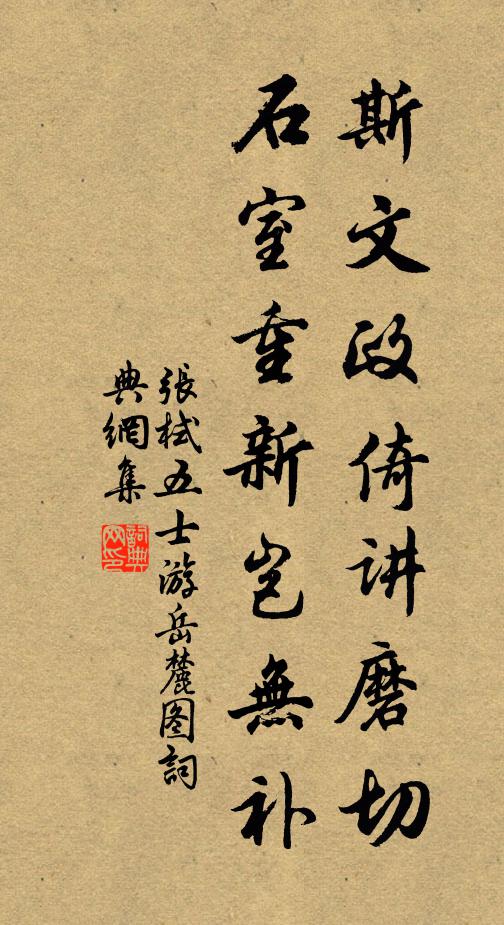 斯文政倚讲磨切
石室重新岂無补
張栻五士游岳麓图詞
典網集
詞典
网印